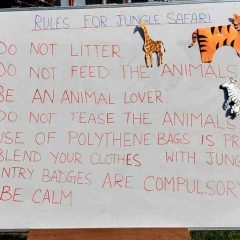 RULES FOR JUNGLE SAFARI
DO NOT LITTER
DO NOT FEED THE ANIMALS
BE AN ANIMAL LOVER
DO NOT TEASE THE ANIMALS
USE OF POLYTHENE BAGS IS PR
BLEND YOUR CLOTHES WITH JUNG
ENTRY BADGES ARE COMPULSOR
BE CALM